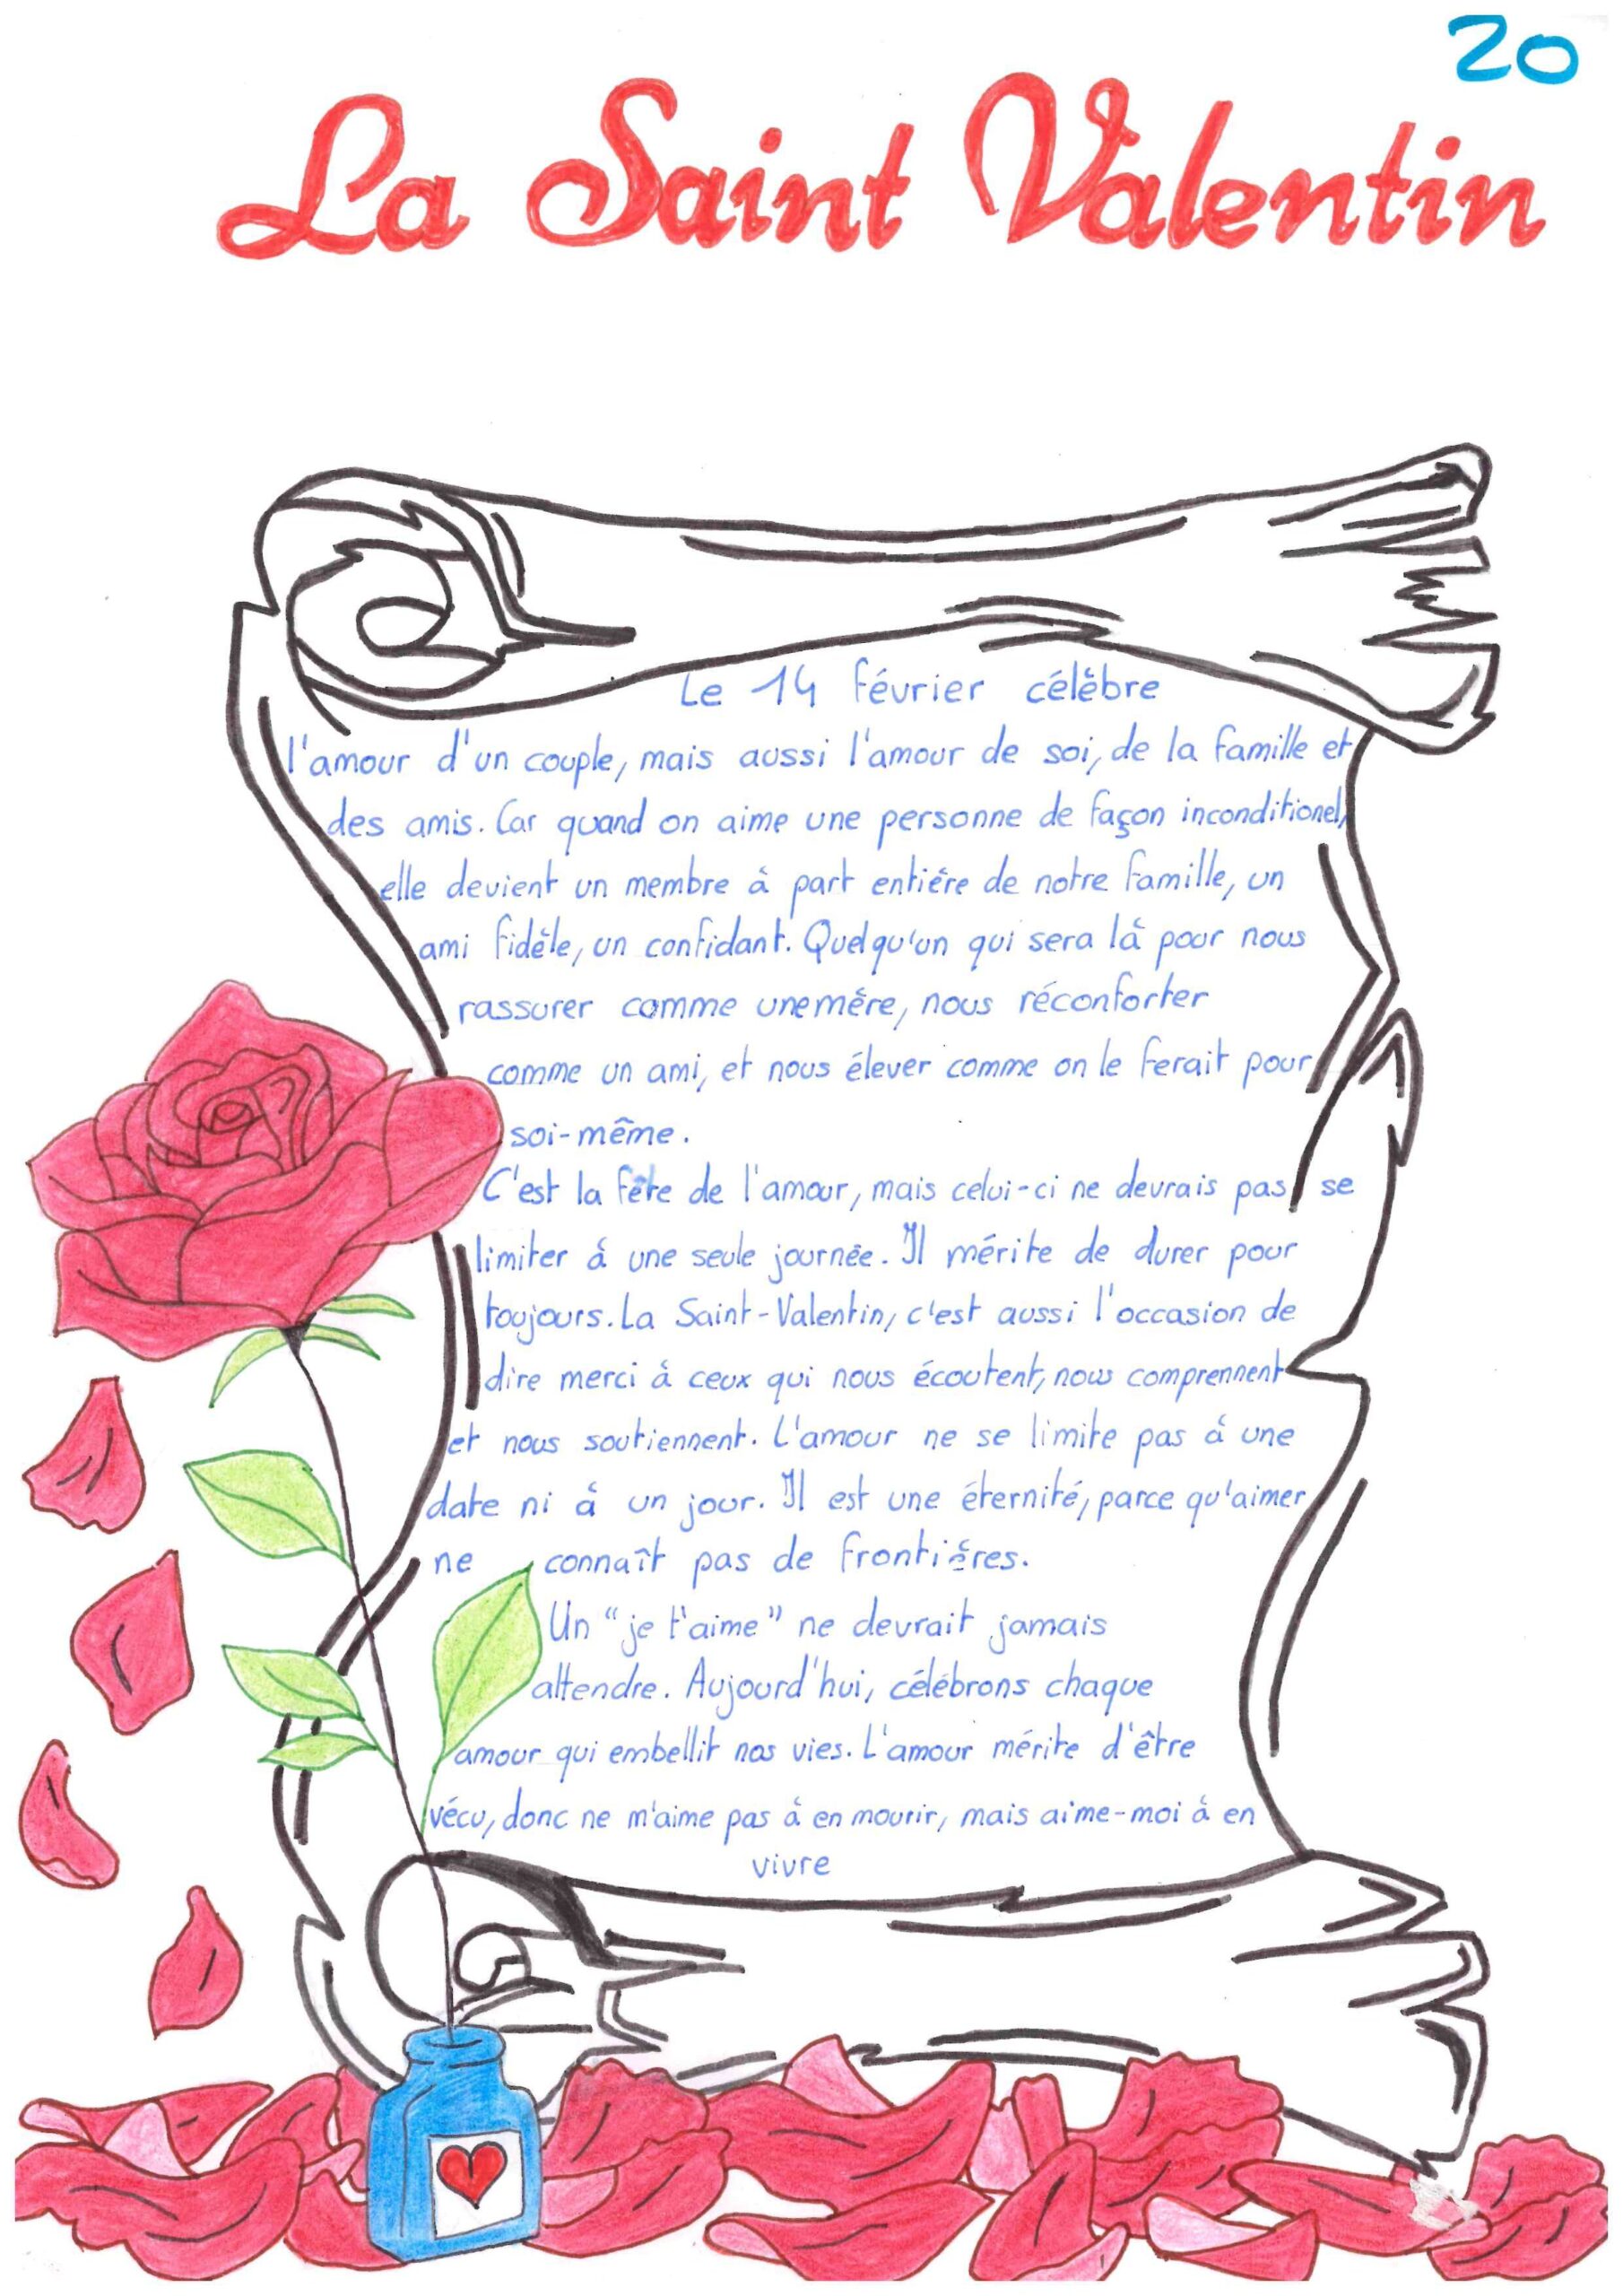 20
La Saint Valentin
Le 14 février célèbre
l'amour d'un couple, mais aussi l'amour de soi, de la famille et
des amis. Car quand on aime une personne de façon inconditionel,
elle devient un membre à part entière de notre famille, un
ami fidèle, un confidant. Quelqu'un qui sera là pour nous
rassurer comme une mère, nous réconforter
comme un ami, et nous élever comme on le ferait pour
soi-même.
C'est la fête de l'amour, mais celui-ci ne devrais pas se
limiter à une seule journée. Il mérite de durer pour
toujours. La Saint-Valentin, c'est aussi l'occasion de
dire merci à ceux qui nous écoutent, nous comprennent
et nous soutiennent. L'amour ne se limite pas à une
date ni à un jour. Il est une éternité, parce qu'aimer
ne connaît pas de frontières.
Un "je t'aime" ne devrait jamais
attendre. Aujourd'hui, célébrons chaque
amour qui embellit nos vies. L'amour mérite d'être
vécu, donc ne m'aime pas à en mourir, mais aime-moi à en
vivre